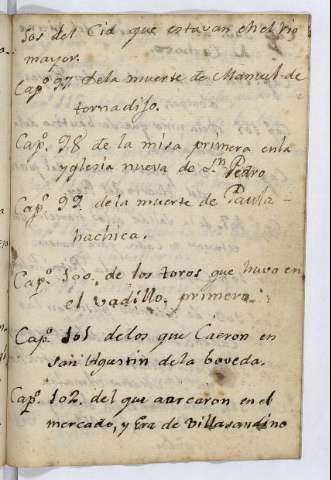 sos del Cid que estavan en el rio
mayor.
Capº. 97. de la muerte de Manuel de
tornadiso.
Capº. 98 de la misa primera en la
yglesia nueva de Sn. Pedro
Capº. 99. de la muerte de Paula-
hachica.
Capº. 100. de los toros que huvo en
el Vadillo, primero
Capº. 101 delos que Caeron en
San Agustin de la boveda.
Capº. 102. del que aorcaron en el
mercado, y Era de Villasandino